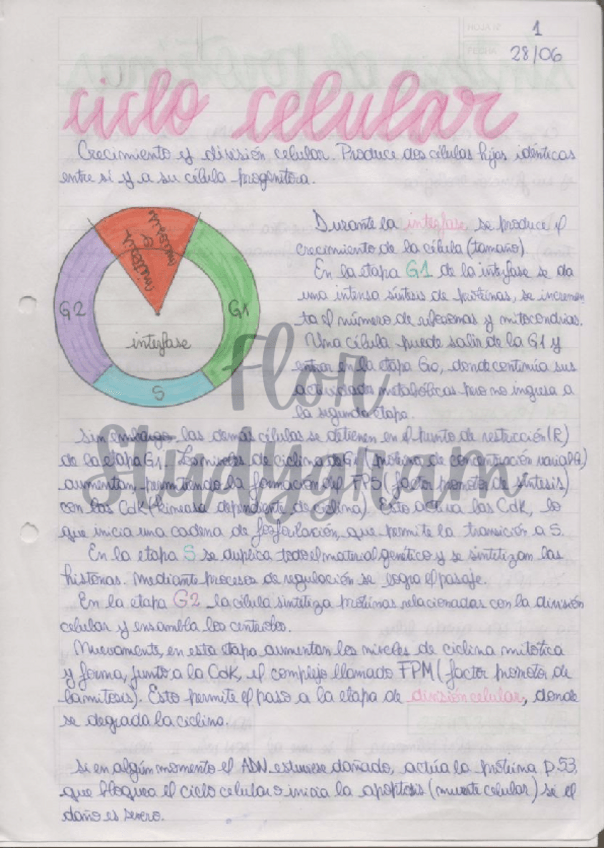 1
28/06
ciclo celular
Crecimiento y división celular. Produce dos células hijas idénticas
entre sí y a su célula progenitora.
Durante la interfase se produce el
crecimiento de la célula (tamaño)
En la etapa G1 de la interfase se da
una intensa síntesis de proteínas, se incremen
ta el número de ribosomas y mitocondrias.
Una célula puede salir de la G1 y
entrar en la etapa G0, donde continúa sus
actividades metabólicas pero no ingresa a
la segunda etapa.
mitosis
o
meiosis
G2
G1
interfase
S
Sin embargo las demás células se detienen en el punto de restricción (R)
de la etapa G1. Los niveles de ciclina de G1 (proteína de concentración variable)
aumentan permitiendo la formación del FPS (factor promotor de síntesis)
con las Cdk (kinasa dependiente de ciclina). Esto activa las Cdk, lo
que inicia una cadena de fosforilación, que permite la transición a S.
En la etapa S se duplica todo el material genético y se sintetizan las
histonas. Mediante procesos de regulación se logra el pasaje.
En la etapa G2 la célula sintetiza proteínas relacionadas con la división
celular y ensambla los centriolos.
Nuevamente, en esta etapa aumentan los niveles de ciclina mitótica
y forma, junto a la Cdk, el complejo llamado FPM (factor promotor de
la mitosis). Esto permite el paso a la etapa de división celular, donde
se degrada la ciclina.
Si en algún momento el ADN estuviese dañado, actúa la proteína p53,
que bloquea el ciclo celular o inicia la apoptosis (muerte celular) si el
daño es severo.
Flor
Studygram